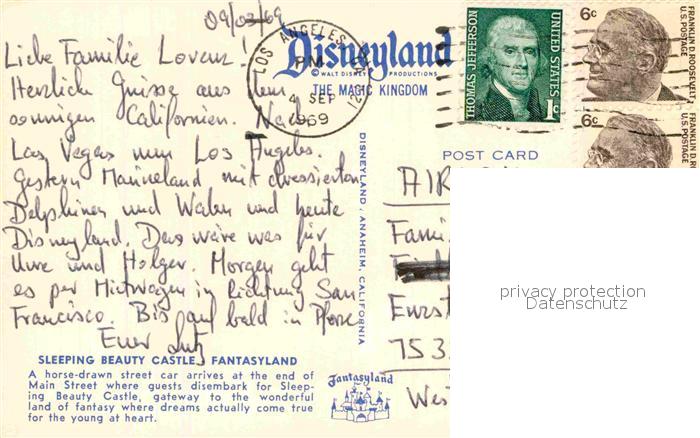 09/03/69
Liebe Familie Lorenz!
Herzliche Grüsse aus dem
sonnigen Californien. Nach
Las Vegas nun Los Angeles.
Gestern Marineland mit dressierten
Delphinen und Walen und heute
Disneyland. Das wäre was für
Uwe und Holger. Morgen geht
es per Mietwagen in Richtung San
Francisco. Bis auf bald in Pforz
Euer Lutz
SLEEPING BEAUTY CASTLE, FANTASYLAND
A horse-drawn street car arrives at the end of
Main Street where guests disembark for Sleep-
ing Beauty Castle, gateway to the wonderful
land of fantasy where dreams actually come true
for the young at heart.
Disneyland
© WALT DISNEY PRODUCTIONS
THE MAGIC KINGDOM
LOS ANGELES
PM
4 SEP
1969
DISNEYLAND, ANAHEIM, CALIFORNIA
Fantasyland
THOMAS JEFFERSON
UNITED STATES
1c
6c
FRANKLIN D. ROOSEVELT
U.S. POSTAGE
6c
FRANKLIN D. R
U.S. POS
POST CARD
AIR
Fami
Enzst
753
Wes
privacy protection
Datenschutz